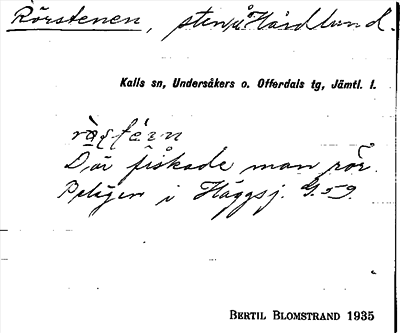 Rörstenen, sten på Hårdlund.
Kalls sn, Undersåkers o. Offerdals tg, Jämtl. l.
Där fiskade man rör.
i Häggsj. G. 59.
BERTIL BLOMSTRAND 1935